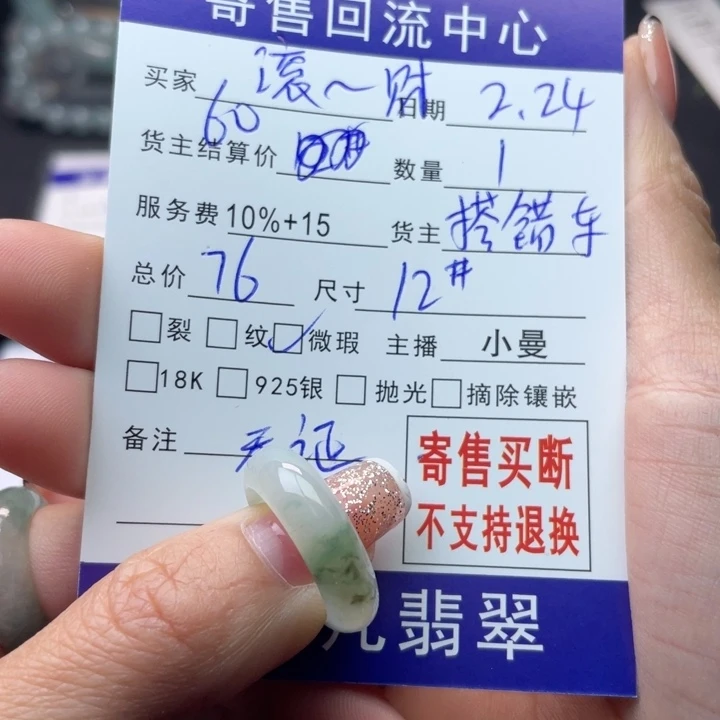 寄售回流中心
买家 滚～财 日期 2.24
货主结算价 60 数量 1
服务费 10%+15 货主 搭错车
总价 76 尺寸 12#
裂 纹 微瑕 主播 小曼
18K 925银 抛光 摘除镶嵌
备注 无证
寄售买断
不支持退换
翡翠